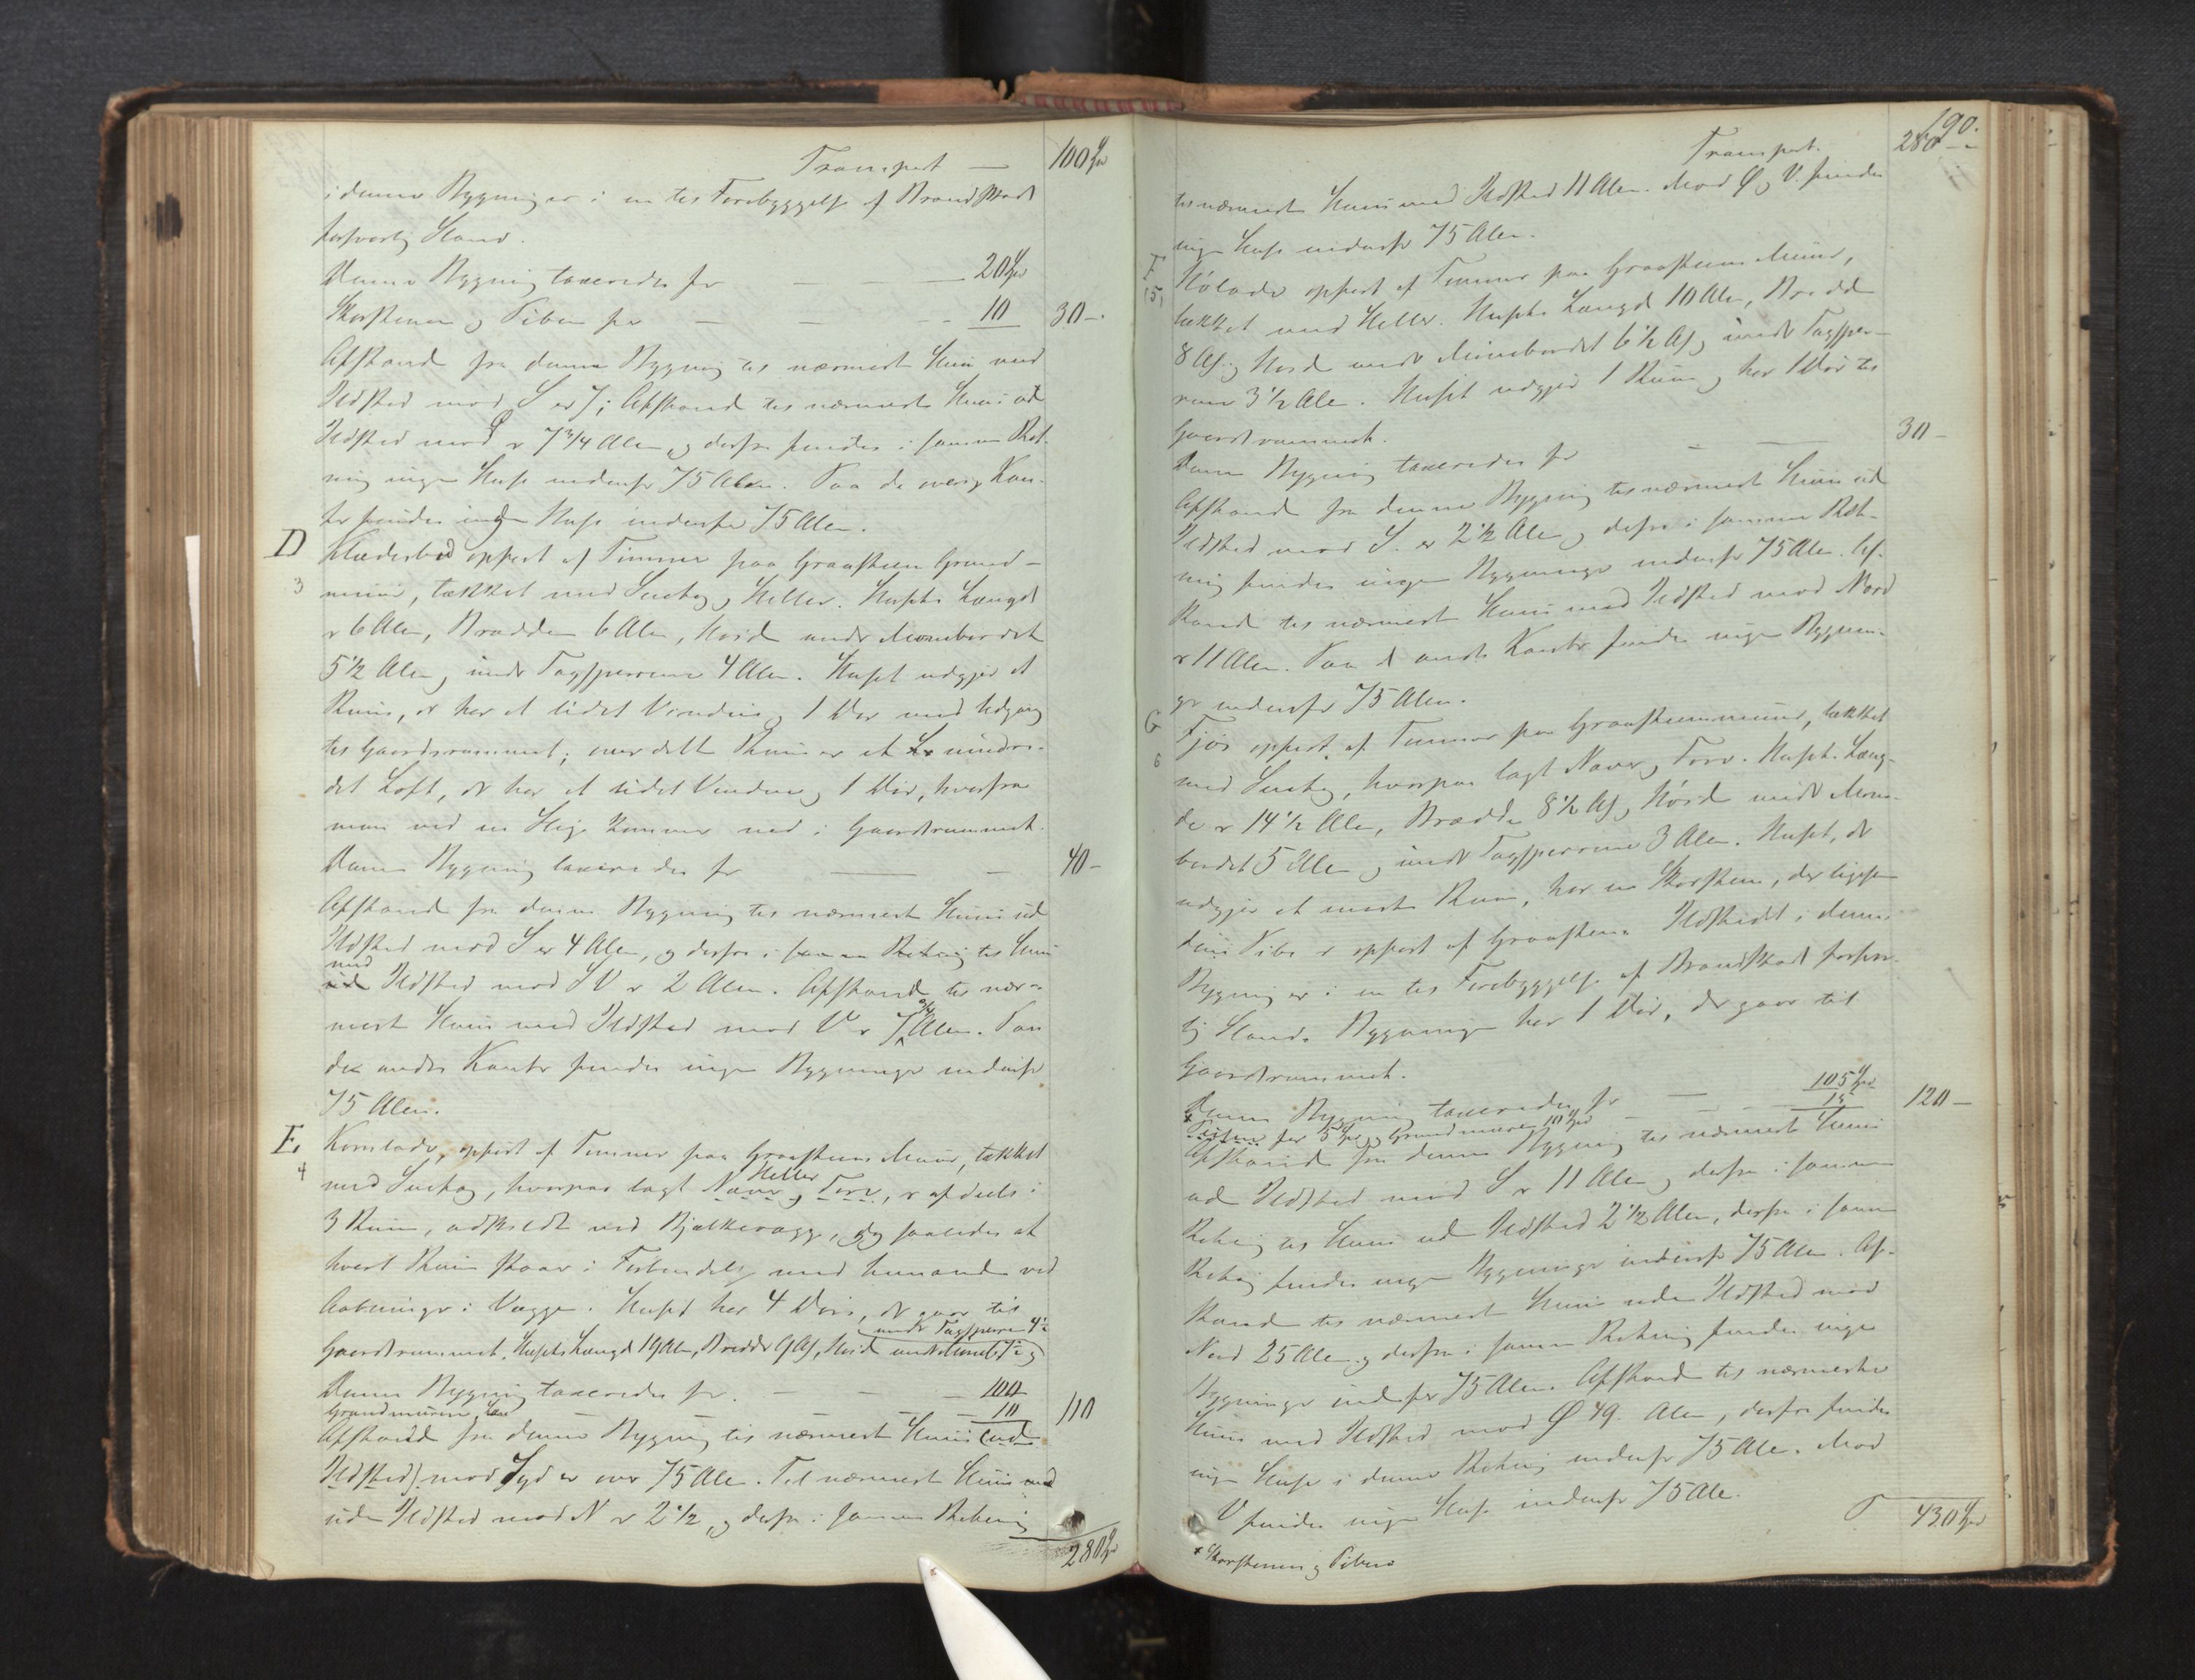 Transport — 100 Spd
i denne Bygning er i en til Forebyggelse af Brandskade
forsvarlig Stand.
Denne Bygning taxeredes for — — — 20 Spd
Skorstenen og Piben for — — - 10 30 -
Afstand fra denne Bygning til nærmeste Huus med
Ildsted mod S er 7; Afstand til nærmeste Huus ud
Ildsted mod Ø er 7 3/4 Alen, og derfra findes i samme Ret-
ning ingen Huse indenfor 75 Alen. Paa de øvrige Kan-
ter findes ingen Huse indenfor 75 Alen.
D Klædesbod opført af Tømmer paa Graasteens Grund-
3 muur, tækket med Suetag og Heller. Husets Længde
er 6 Alen, Bredden 6 Alen, Høide under Mønebordet
5 1/2 Alen og under Tagsperrene 4 Alen. Huset udgjør et
Ruum, der har et lidet Vindue og 1 Dør med Udgang
til Gaardsrummet; over dette Ruum er et uindre-
det Loft, der har et lidet Vindue og 1 Dør, hvorfra
man ved en Stige kommer ned i Gaardsrummet.
Denne Bygning taxeredes for — — 40 -
Afstand fra denne Bygning til nærmeste Huus ud
Ildsted mod S er 4 Alen, og derfra i samme Retning til Huus
med Ildsted mod SV er 2 Alen. Afstand til nær-
meste Huus med Ildsted mod V er 7 3/4 Alen. Paa
de andre Kanter findes ingen Bygninger indenfor
75 Alen.
E. Kornlade, opført af Tømmer paa Graasteens Muur, tækket
4 med Suetag, hvorpaa lagt Næver og Torv, Heller, er afdeelt i
3 Ruum, adskildt ved Bjælkevægge, dog saaledes at
hvert Ruum staar i Forbindelse med hinanden ved
Aabninger i Vægge. Huset har 4 Døre, der gaar til
Gaardsrummet. Husets Længde 19 Alen, Bredde 9 Al, Høide under Møneb. 7 1/2 og under Tagsperre 4 1/2
Denne Bygning taxeredes for. — — — 100
Grundmuren — — — 10 110
Afstand fra denne Bygning til nærmeste Huus (ud
Ildsted) mod Syd er over 75 Ale. Til nærmeste Huus
uden Ildsted mod N er 2 1/2, og derfra i samme Retning
280 Spd
190.
Transport. 280 -
til nærmeste Huus med Ildsted 11 Alen. Mod Ø og V. findes
ingen Huse indenfor 75 Alen.
F Hølade opført af Tømmer paa Graasteens Muur,
(5) tækket med Heller. Husets Længde 10 Alen, Bredde
8 Al. og Høide under Mønebordet 6 1/2 Al og under Tagsper-
rene 3 1/2 Ale. Huset udgjør 1 Ruum og har 1 Dør til
Gaardsrummet.
Denne Bygning taxeredes for — — 30 -
Afstand fra denne Bygning til nærmeste Huus ud
Ildsted mod S. er 2 1/2 Ale og derfra i samme Ret-
ning findes ingen Bygninger indenfor 75 Ale. Af-
stand til nærmeste Huus med Ildsted mod Nord
er 11 Alen. Paa de andre Kanter findes ingen Bygnin-
ger indenfor 75 Alen.
G Fjøs opført af Tømmer paa Graasteensmuur, tækket
6 med Suetag, hvorpaa lagt Næver og Torv. Husets Læng-
de er 14 1/2 Ale, Bredde 8 1/2 Al og Høide under Møne-
bordet 5 Ale og under Tagsperrene 3 Alen. Huset, der
udgjør et eneste Ruum, har en Skorsteen, der ligesom
dens Pibe er opført af Graasteen. Ildstedet i denne
Bygning er i en til Forebyggelse af Brandskade forsvar-
lig Stand. Bygningen har 1 Dør, der gaar til
Gaardsrummet.
Denne Bygning taxeredes for — 105 Spd
* for 5 Spd og Grundmuren 10 Spd — — 15 120 —
Afstand fra denne Bygning til nærmeste Huus
ud Ildsted mod S er 11 Ale og derfra i samme
Retning til Huus ud Ildsted 2 1/2 Alen, derfra i samme
Retning findes ingen Bygninger indenfor 75 Alen. Af-
stand til nærmeste Huus uden Ildsted mod
Nord 25 Ale og derfra i samme Retning findes ingen
Bygninger indenfor 75 Alen. Afstand til nærmeste
Huus med Ildsted mod Ø 49. Alen, derfra findes
ingen Huse i denne Retning indenfor 75 Ale. Mod
V findes ingen Huse indenfor 75 Ale.
430 Spd
* Skorstenen og Piben